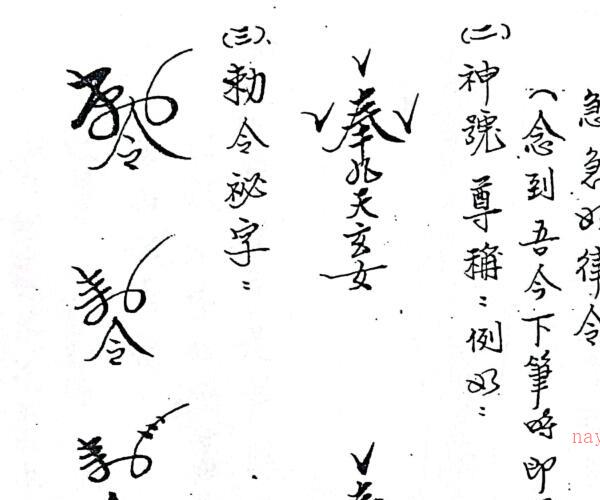 急急如律令
(念到吾今下筆時即
(二)神號尊稱:例如:
奉九天玄女
(三)、勅令祕字:
令
令
nay